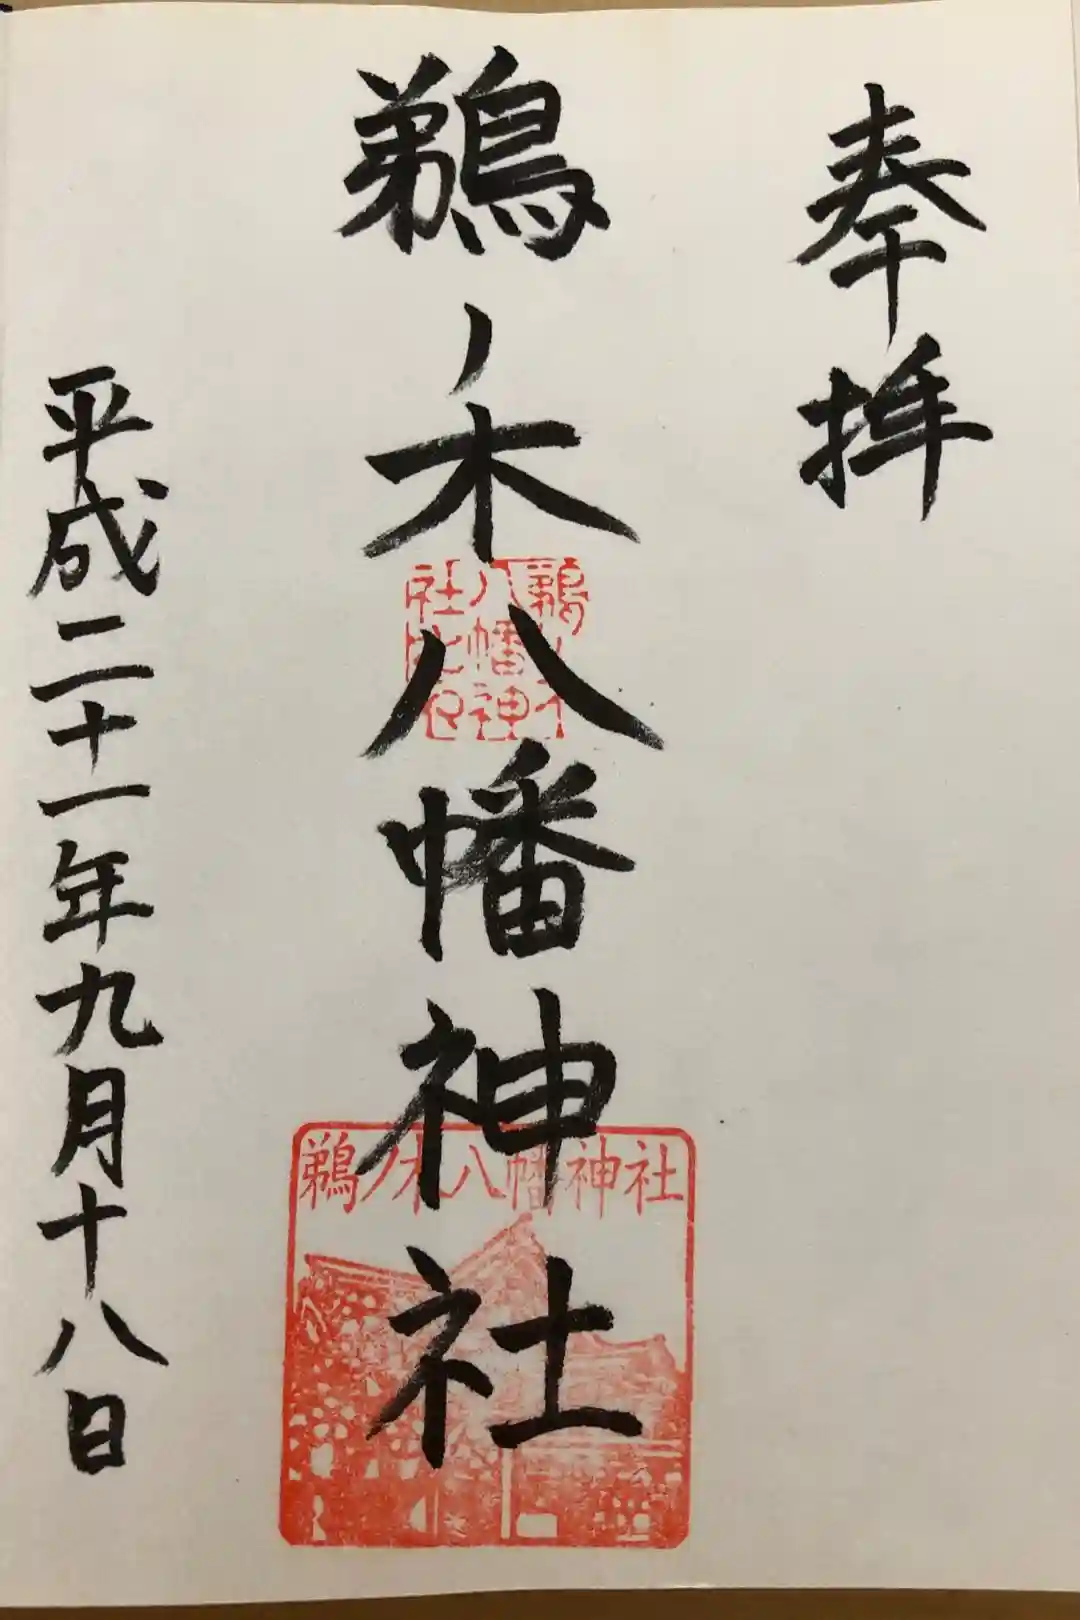 奉拝
鵜ノ木八幡神社
鵜ノ木八幡神社之印
鵜ノ木八幡神社
平成二十一年九月十八日